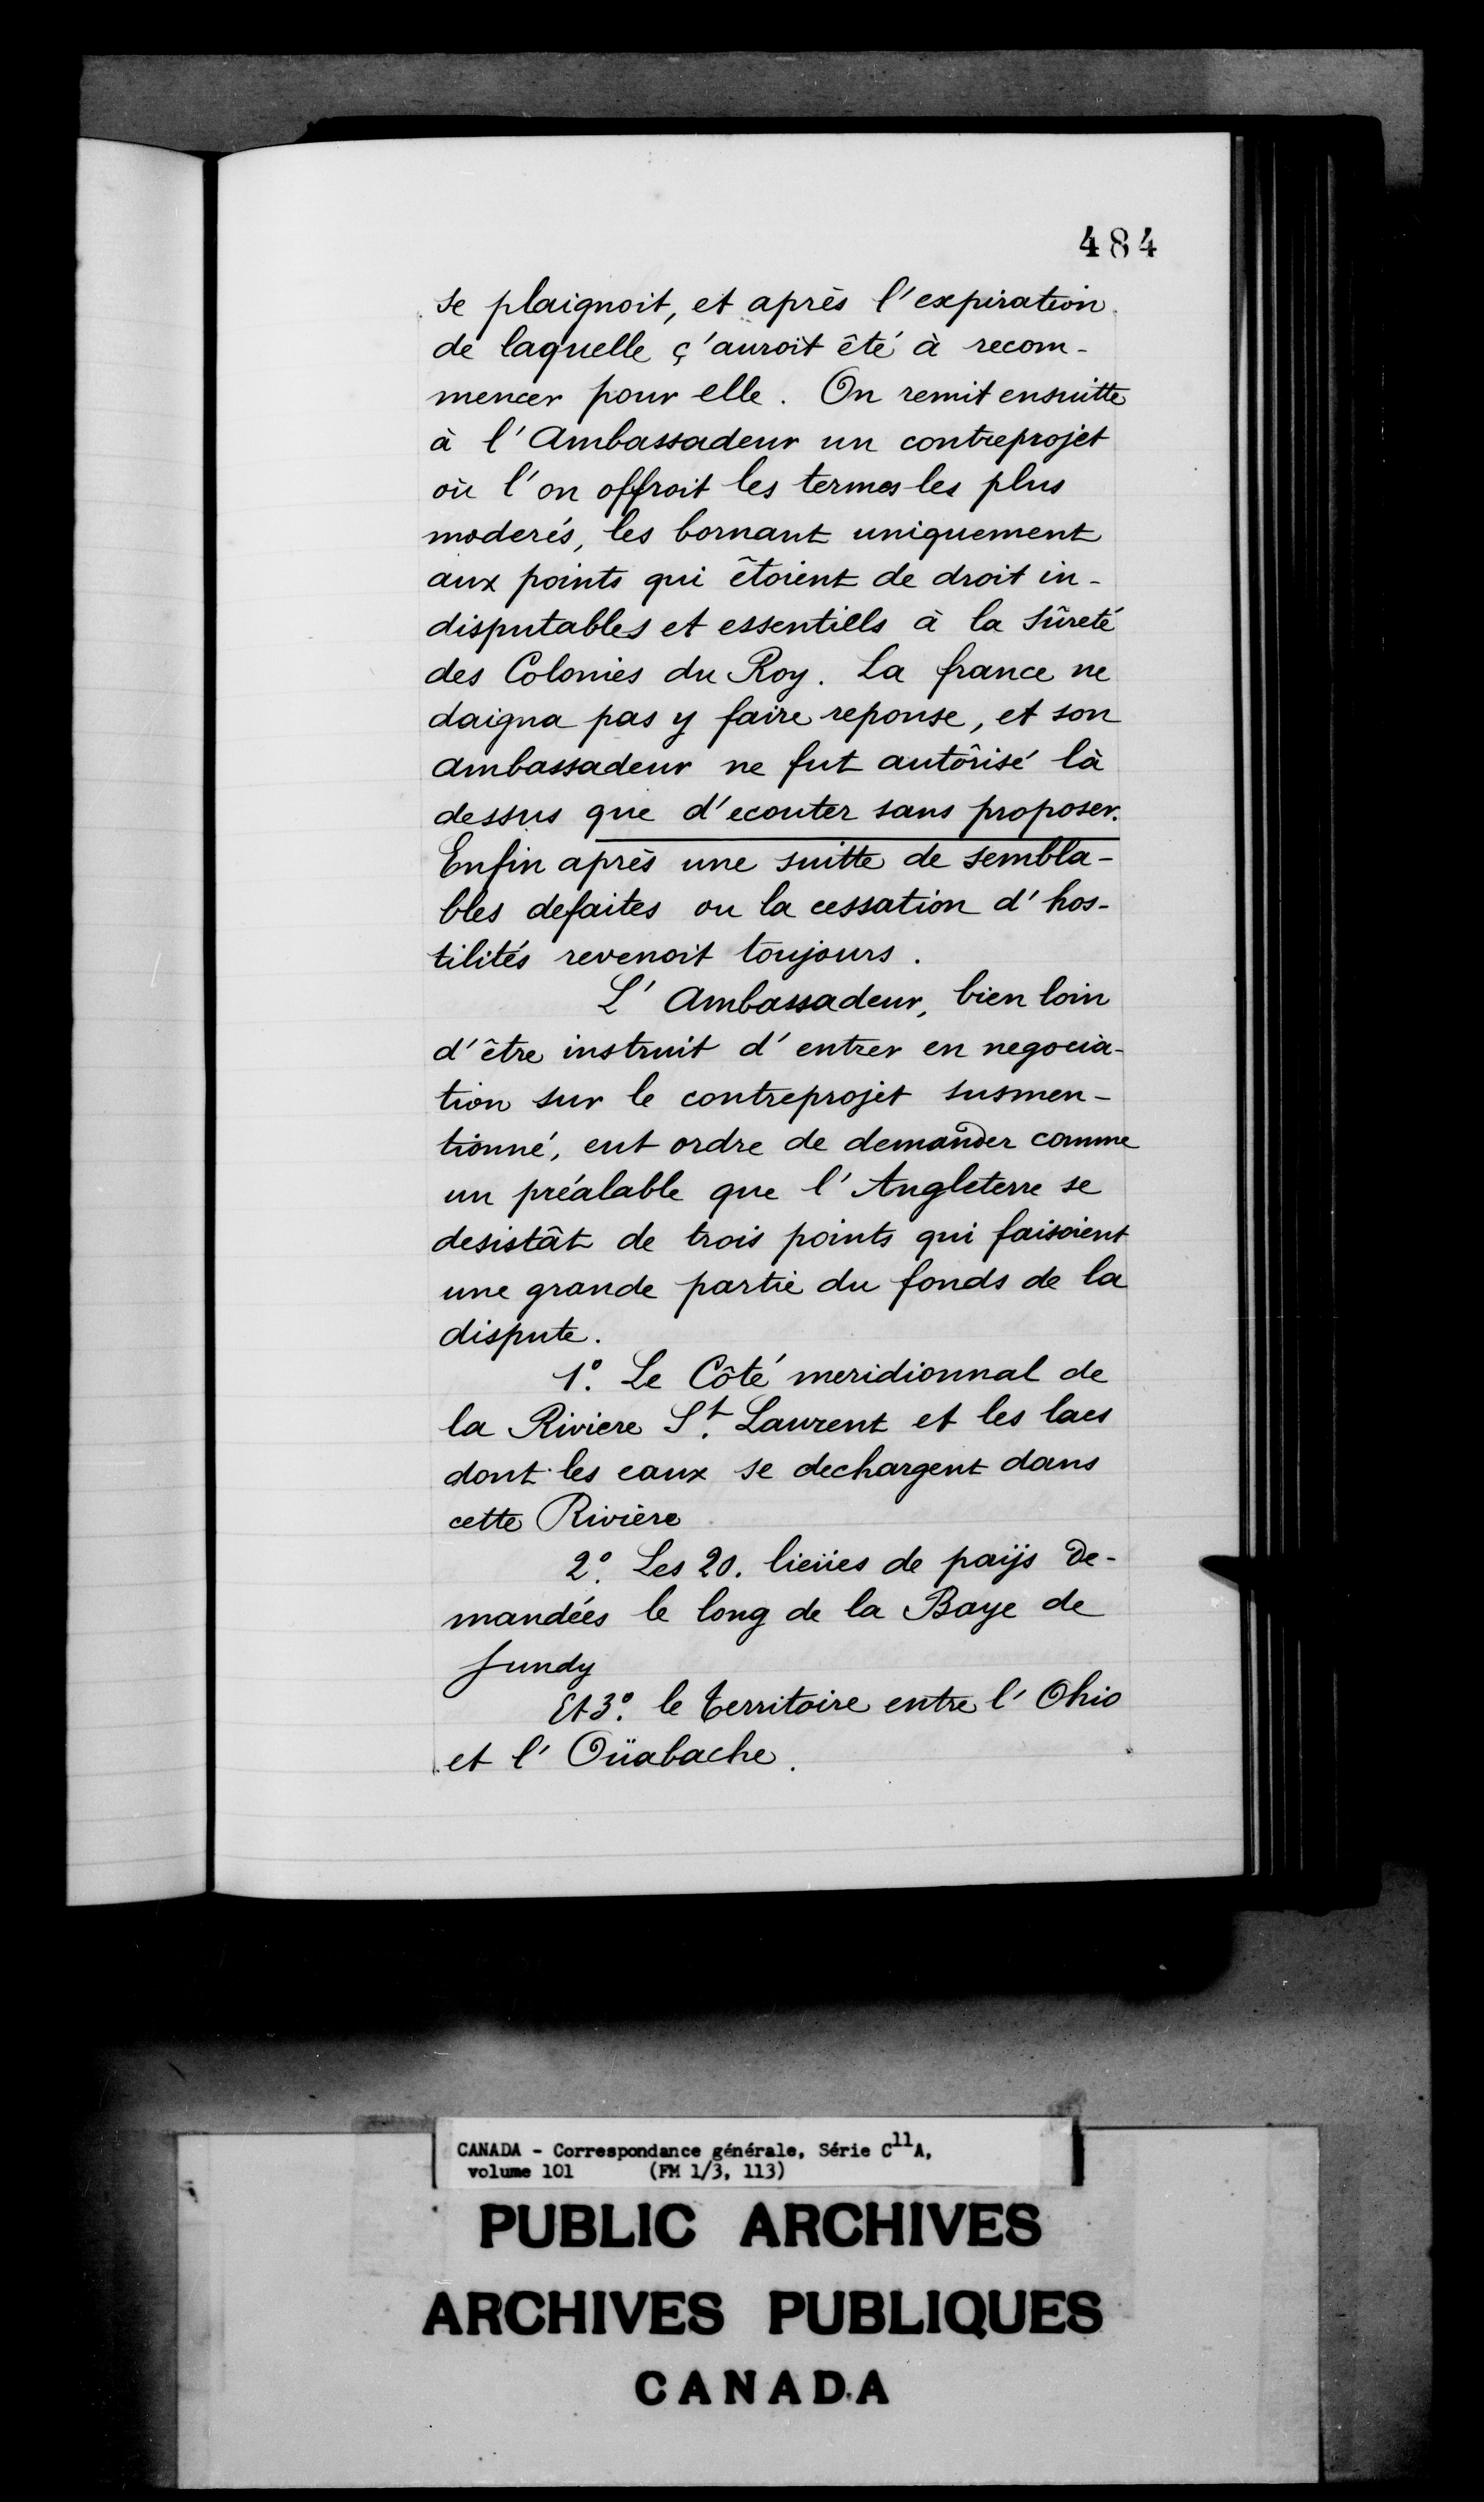 484
se plaignoit, et après l'expiration
de laquelle ç'auroit êté à recom-
mencer pour elle. On remit ensuitte
à l'Ambassadeur un contreprojet
où l'on offroit les termes les plus
moderés, les bornant uniquement
aux points qui êtoient de droit in-
disputables et essentiells à la sûreté
des Colonies du Roy. La france ne
daigna pas y faire reponse, et son
ambassadeur ne fut autôrisé là
dessus que d'ecouter sans proposer.
Enfin après une suitte de sembla-
bles defaites ou la cessation d'hos-
tilités revenoit toujours.
L'Ambassadeur, bien loin
d'être instruit d'entrer en negocia-
tion sur le contreprojet susmen-
tionné, eut ordre de demander comme
un préalable que l'Angleterre se
desistât de trois points qui faisoient
une grande partie du fonds de la
dispute.
1º. Le Côté meridionnal de
la Riviere St. Laurent et les lacs
dont les eaux se dechargent dans
cette Rivière
2º. Les 20. lieües de païjs de-
mandées le long de la Baye de
fundy
Et 3º. le territoire entre l'Ohio
et l'Oüabache.
CANADA - Correspondance générale, Série C11A,
volume 101 (FM 1/3, 113)
PUBLIC ARCHIVES
ARCHIVES PUBLIQUES
CANADA